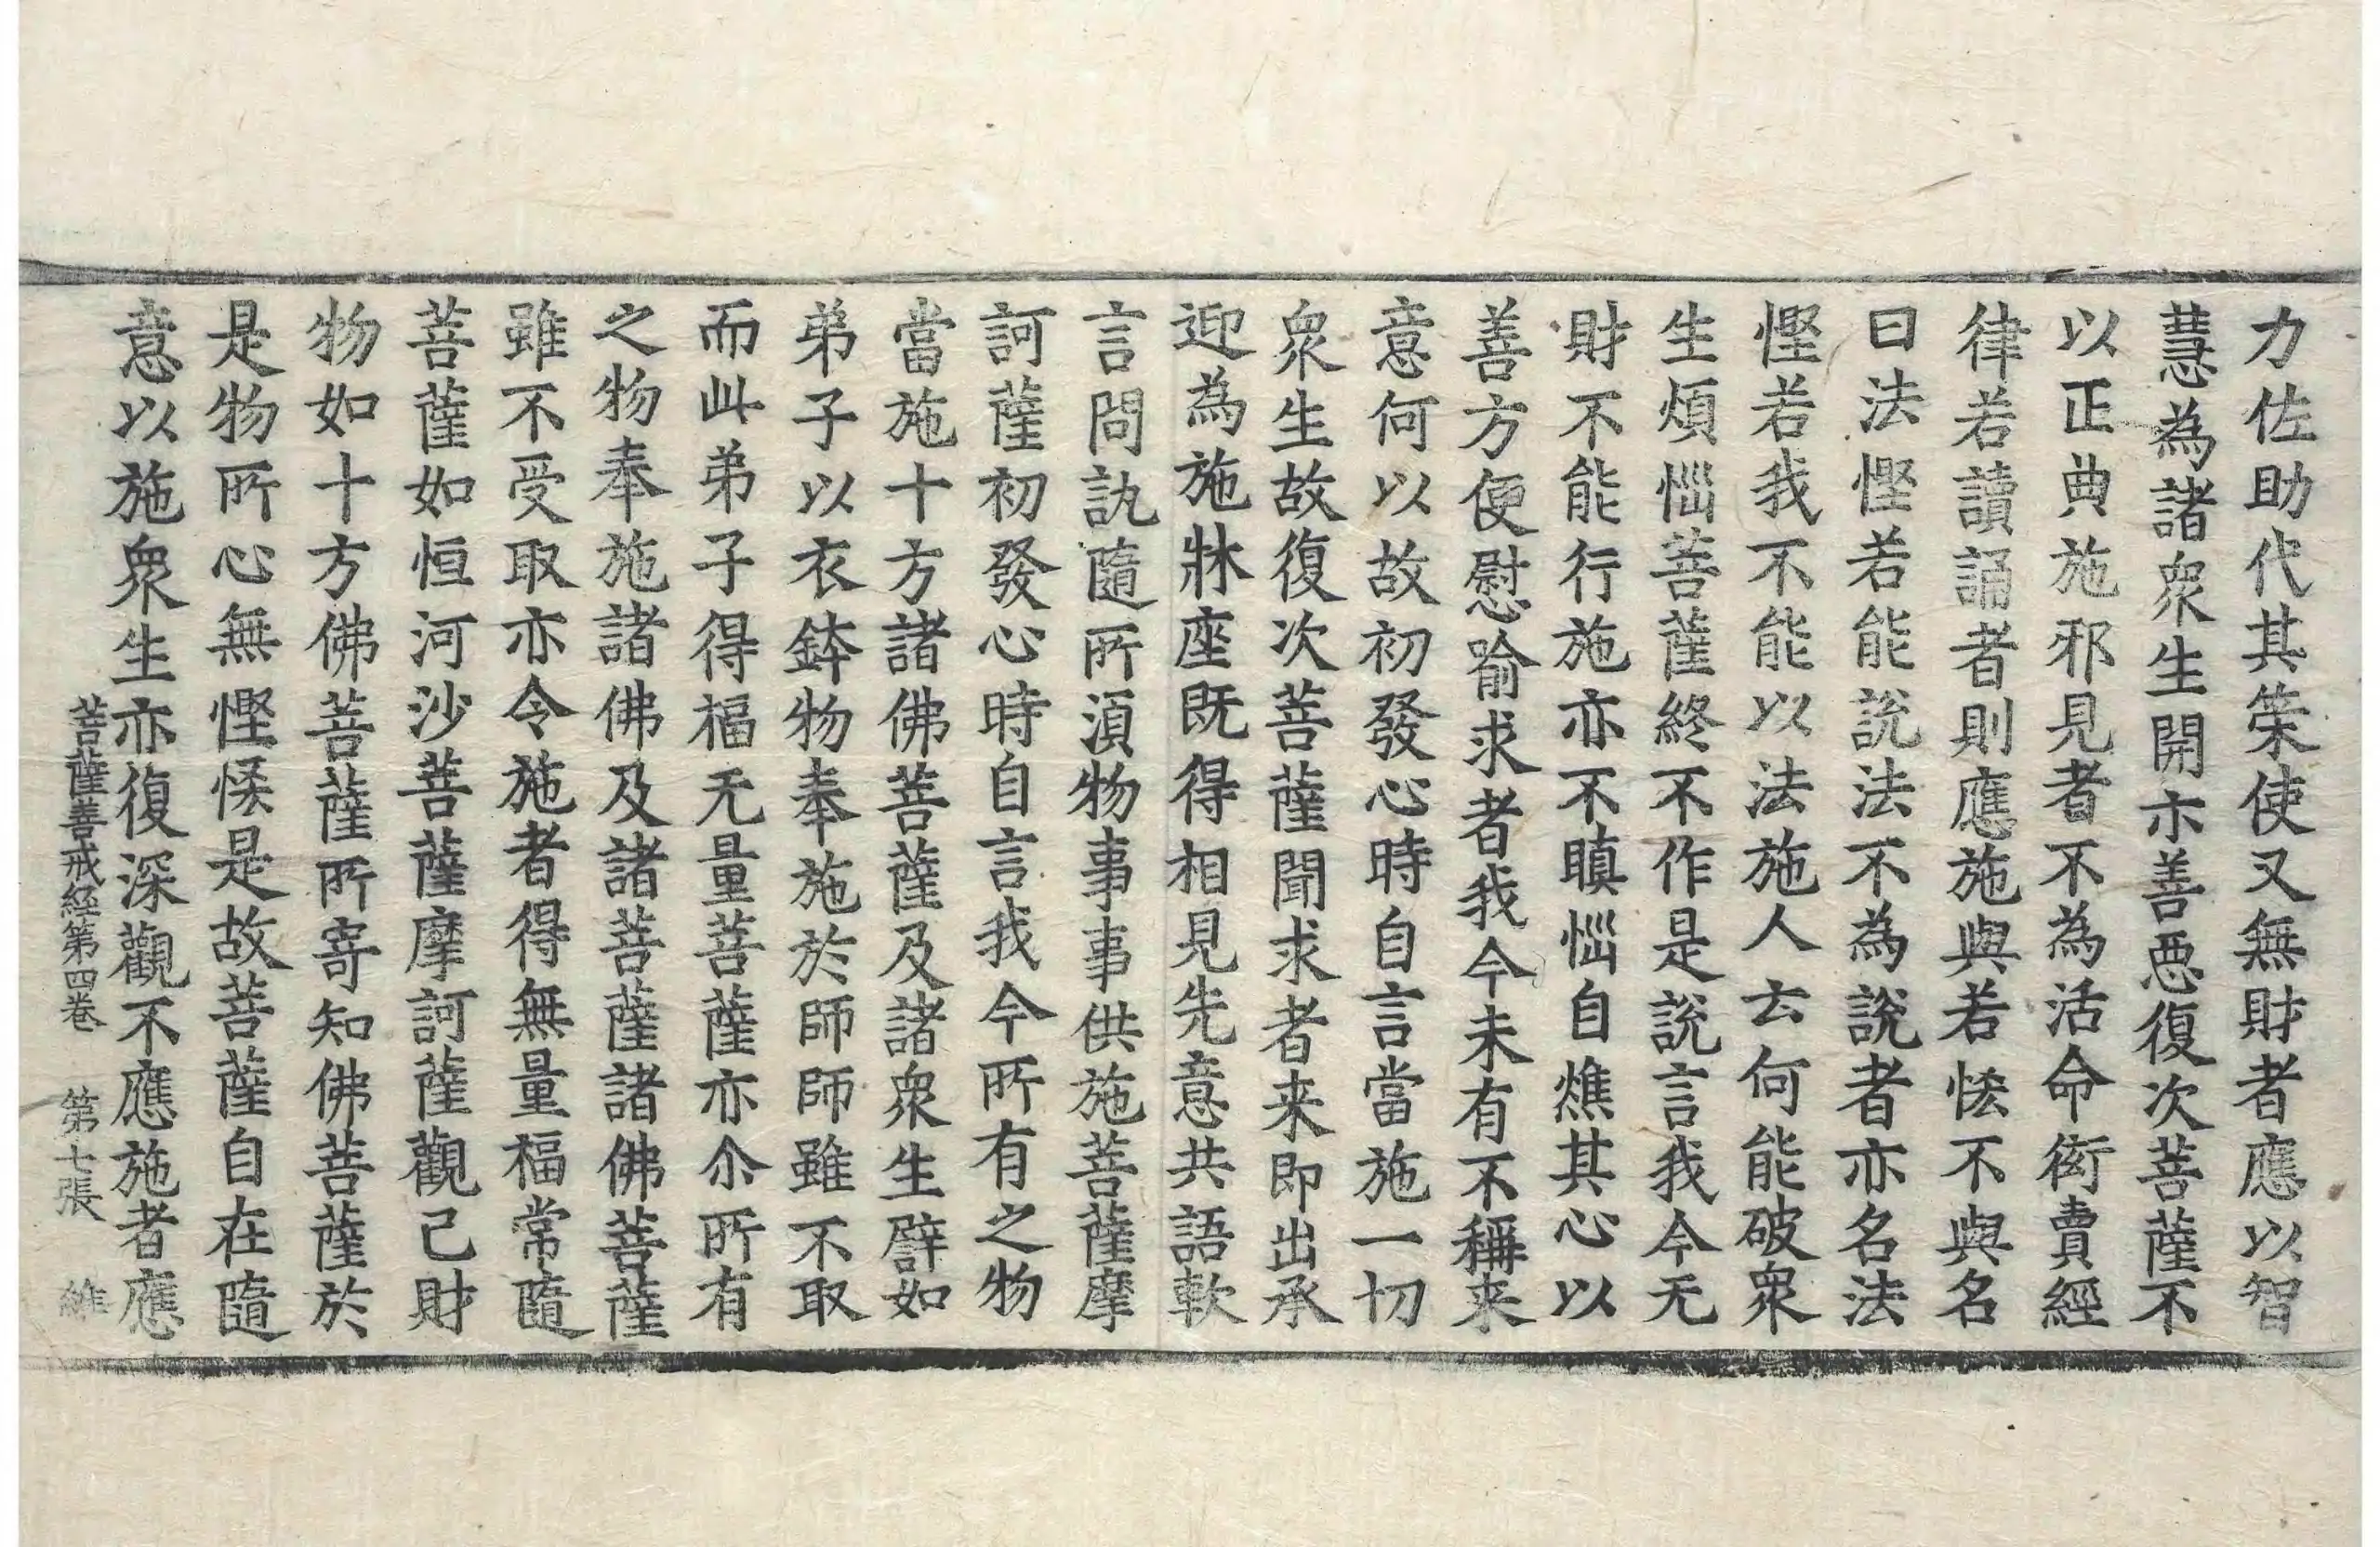 力佐助代其策使又無財者應以智
慧為諸衆生開示善惡復次菩薩不
以正典施邪見者不為活命衒賣經
律若讀誦者則應施與若悋不與名
曰法慳若能說法不為說者亦名法
慳若我不能以法施人云何能破衆
生煩惱菩薩終不作是說言我今无
財不能行施亦不瞋惱自燋其心以
善方便慰喻求者我今未有不稱来
意何以故初發心時自言當施一切
衆生故復次菩薩聞求者来即出承
迎為施牀座既得相見先意共語軟
言問訊隨所須物事事供施菩薩摩
訶薩初發心時自言我今所有之物
當施十方諸佛菩薩及諸衆生譬如
弟子以衣鉢物奉施於師師雖不取
而此弟子得福无量菩薩亦尒所有
之物奉施諸佛及諸菩薩諸佛菩薩
雖不受取亦令施者得無量福常隨
菩薩如恒河沙菩薩摩訶薩觀己財
物如十方佛菩薩所寄知佛菩薩於
是物所心無慳悋是故菩薩自在隨
意以施衆生亦復深觀不應施者應
菩薩善戒經第四卷 第七張 維